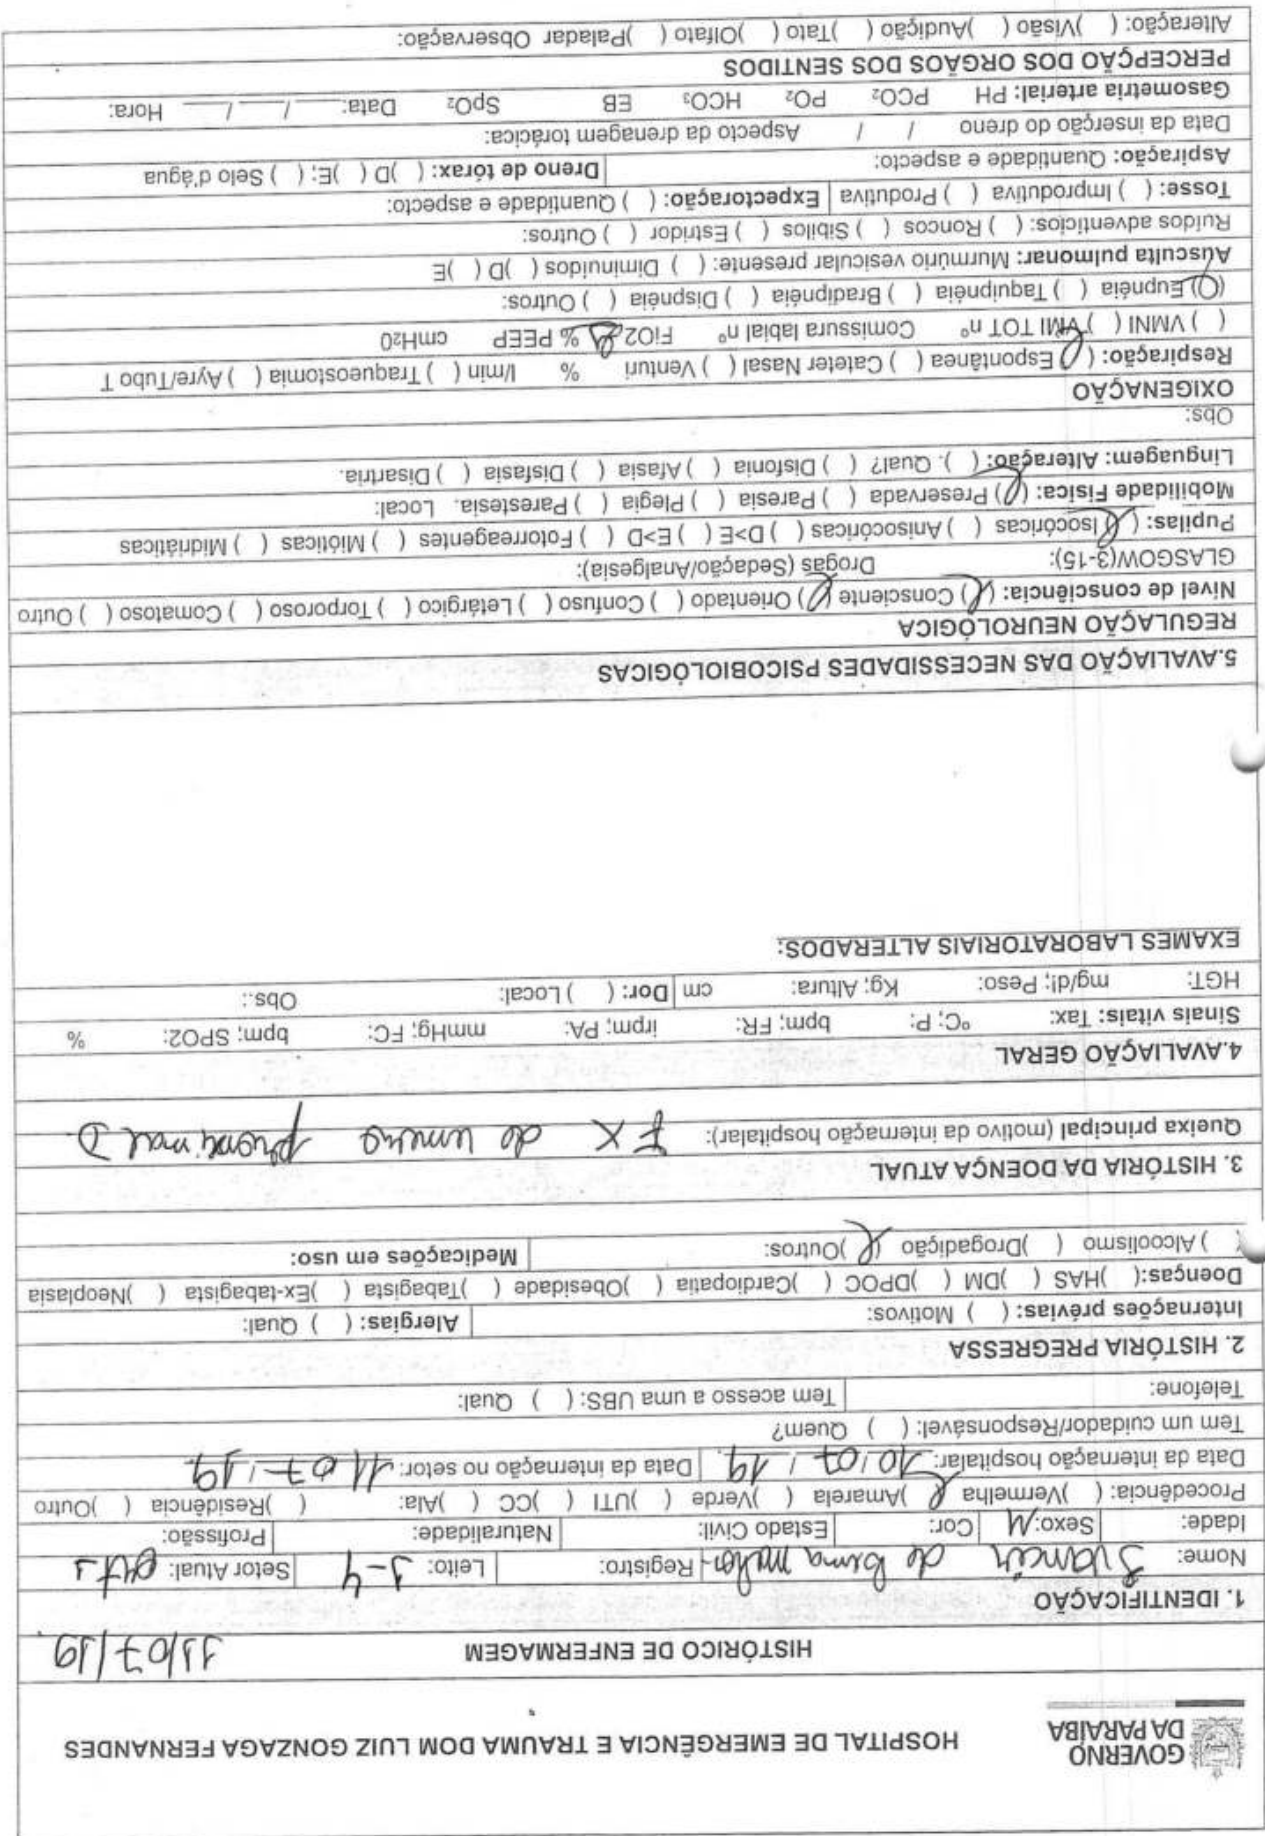 GOVERNO
DA PARAÍBA
HOSPITAL DE EMERGÊNCIA E TRAUMA DOM LUIZ GONZAGA FERNANDES
HISTÓRICO DE ENFERMAGEM 11/07/19
1. IDENTIFICAÇÃO
Nome: de Lima Registro: Leito: 3-4 Setor Atual:
Idade: Sexo: M Cor: Estado Civil: Naturalidade: Profissão:
Procedência: ( )Vermelha ( )Amarela ( )Verde ( )UTI ( )CC ( )Ala: ( )Residência ( )Outro
Data da internação hospitalar: 10/07/19. Data da internação no setor: 11/07/19.
Tem um cuidador/Responsável: ( ) Quem?
Telefone: Tem acesso a uma UBS: ( ) Qual:
2. HISTÓRIA PREGRESSA
Internações prévias: ( ) Motivos: Alergias: ( ) Qual:
Doenças:( )HAS ( )DM ( )DPOC ( )Cardiopatia ( )Obesidade ( )Tabagista ( )Ex-tabagista ( )Neoplasia
( )Alcoolismo ( )Drogadição ( )Outros: Medicações em uso:
3. HISTÓRIA DA DOENÇA ATUAL
Queixa principal (motivo da internação hospitalar): FX de umero proximal D
4.AVALIAÇÃO GERAL
Sinais vitais: Tax: ºC; P: bpm; FR: irpm; PA: mmHg; FC: bpm; SPO2: %
HGT: mg/dl; Peso: Kg; Altura: cm Dor: ( ) Local: Obs.:
EXAMES LABORATORIAIS ALTERADOS:
5.AVALIAÇÃO DAS NECESSIDADES PSICOBIOLÓGICAS
REGULAÇÃO NEUROLÓGICA
Nível de consciência: ( ) Consciente ( ) Orientado ( ) Confuso ( ) Letárgico ( ) Torporoso ( ) Comatoso ( ) Outro
GLASGOW(3-15): Drogas (Sedação/Analgesia):
Pupilas: ( ) Isocóricas ( ) Anisocóricas ( ) D>E ( ) E>D ( ) Fotorreagentes ( ) Mióticas ( ) Midriáticas
Mobilidade Física: ( ) Preservada ( ) Paresia ( ) Plegia ( ) Parestesia. Local:
Linguagem: Alteração: ( ). Qual? ( ) Disfonia ( ) Afasia ( ) Disfasia ( ) Disartria.
Obs:
OXIGENAÇÃO
Respiração: ( ) Espontânea ( ) Cateter Nasal ( ) Venturi % l/min ( ) Traqueostomia ( ) Ayre/Tubo T
( ) VMNI ( ) VMI TOT nº Comissura labial nº FiO2 % PEEP cmH20
( ) Eupnéia ( ) Taquipnéia ( ) Bradipnéia ( ) Dispnéia ( ) Outros:
Ausculta pulmonar: Murmúrio vesicular presente: ( ) Diminuídos ( )D ( )E
Ruídos adventícios: ( ) Roncos ( ) Sibilos ( ) Estridor ( ) Outros:
Tosse: ( ) Improdutiva ( ) Produtiva Expectoração: ( ) Quantidade e aspecto:
Aspiração: Quantidade e aspecto: Dreno de tórax: ( )D ( )E; ( ) Selo d'água
Data da inserção do dreno / / Aspecto da drenagem torácica:
Gasometria arterial: PH PCO2 PO2 HCO3 EB SpO2 Data: / / Hora:
PERCEPÇÃO DOS ORGÃOS DOS SENTIDOS
Alteração: ( )Visão ( )Audição ( )Tato ( )Olfato ( )Paladar Observação: